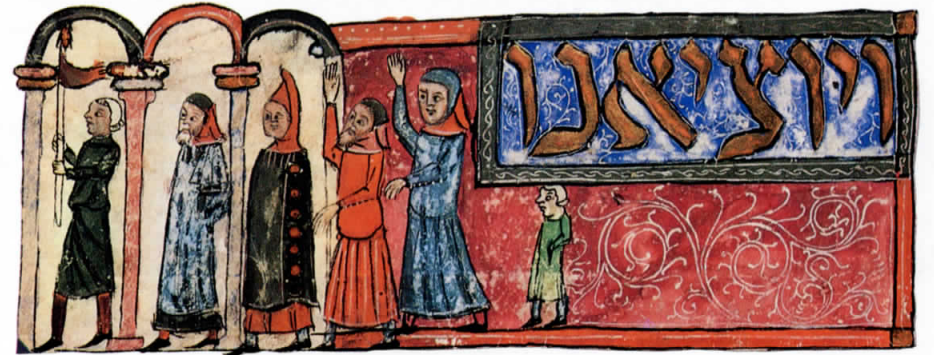 ויוציאנו